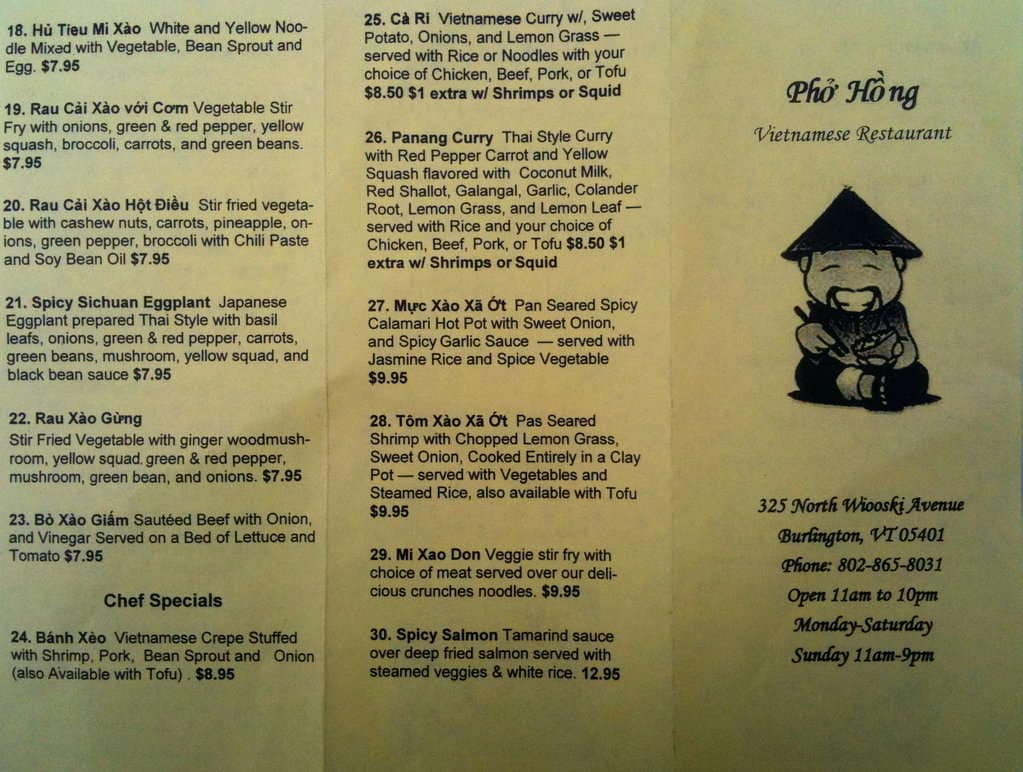 18. Hủ Tíeu Mi Xào White and Yellow Noo-
dle Mixed with Vegetable, Bean Sprout and
Egg. $7.95
19. Rau Cải Xào với Cơm Vegetable Stir
Fry with onions, green & red pepper, yellow
squash, broccoli, carrots, and green beans.
$7.95
20. Rau Cải Xào Hột Điều Stir fried vegeta-
ble with cashew nuts, carrots, pineapple, on-
ions, green pepper, broccoli with Chili Paste
and Soy Bean Oil $7.95
21. Spicy Sichuan Eggplant Japanese
Eggplant prepared Thai Style with basil
leafs, onions, green & red pepper, carrots,
green beans, mushroom, yellow squad, and
black bean sauce $7.95
22. Rau Xào Gừng
Stir Fried Vegetable with ginger woodmush-
room, yellow squad. green & red pepper,
mushroom, green bean, and onions. $7.95
23. Bò Xào Giấm Sautéed Beef with Onion,
and Vinegar Served on a Bed of Lettuce and
Tomato $7.95
Chef Specials
24. Bánh Xèo Vietnamese Crepe Stuffed
with Shrimp, Pork, Bean Sprout and Onion
(also Available with Tofu) . $8.95
25. Cà Ri Vietnamese Curry w/, Sweet
Potato, Onions, and Lemon Grass —
served with Rice or Noodles with your
choice of Chicken, Beef, Pork, or Tofu
$8.50 $1 extra w/ Shrimps or Squid
26. Panang Curry Thai Style Curry
with Red Pepper Carrot and Yellow
Squash flavored with Coconut Milk,
Red Shallot, Galangal, Garlic, Colander
Root, Lemon Grass, and Lemon Leaf —
served with Rice and your choice of
Chicken, Beef, Pork, or Tofu $8.50 $1
extra w/ Shrimps or Squid
27. Mực Xào Xã Ớt Pan Seared Spicy
Calamari Hot Pot with Sweet Onion,
and Spicy Garlic Sauce — served with
Jasmine Rice and Spice Vegetable
$9.95
28. Tôm Xào Xã Ớt Pas Seared
Shrimp with Chopped Lemon Grass,
Sweet Onion, Cooked Entirely in a Clay
Pot — served with Vegetables and
Steamed Rice, also available with Tofu
$9.95
29. Mi Xao Don Veggie stir fry with
choice of meat served over our deli-
cious crunches noodles. $9.95
30. Spicy Salmon Tamarind sauce
over deep fried salmon served with
steamed veggies & white rice. 12.95
Phở Hồng
Vietnamese Restaurant
325 North Wiooski Avenue
Burlington, VT 05401
Phone: 802-865-8031
Open 11am to 10pm
Monday-Saturday
Sunday 11am-9pm